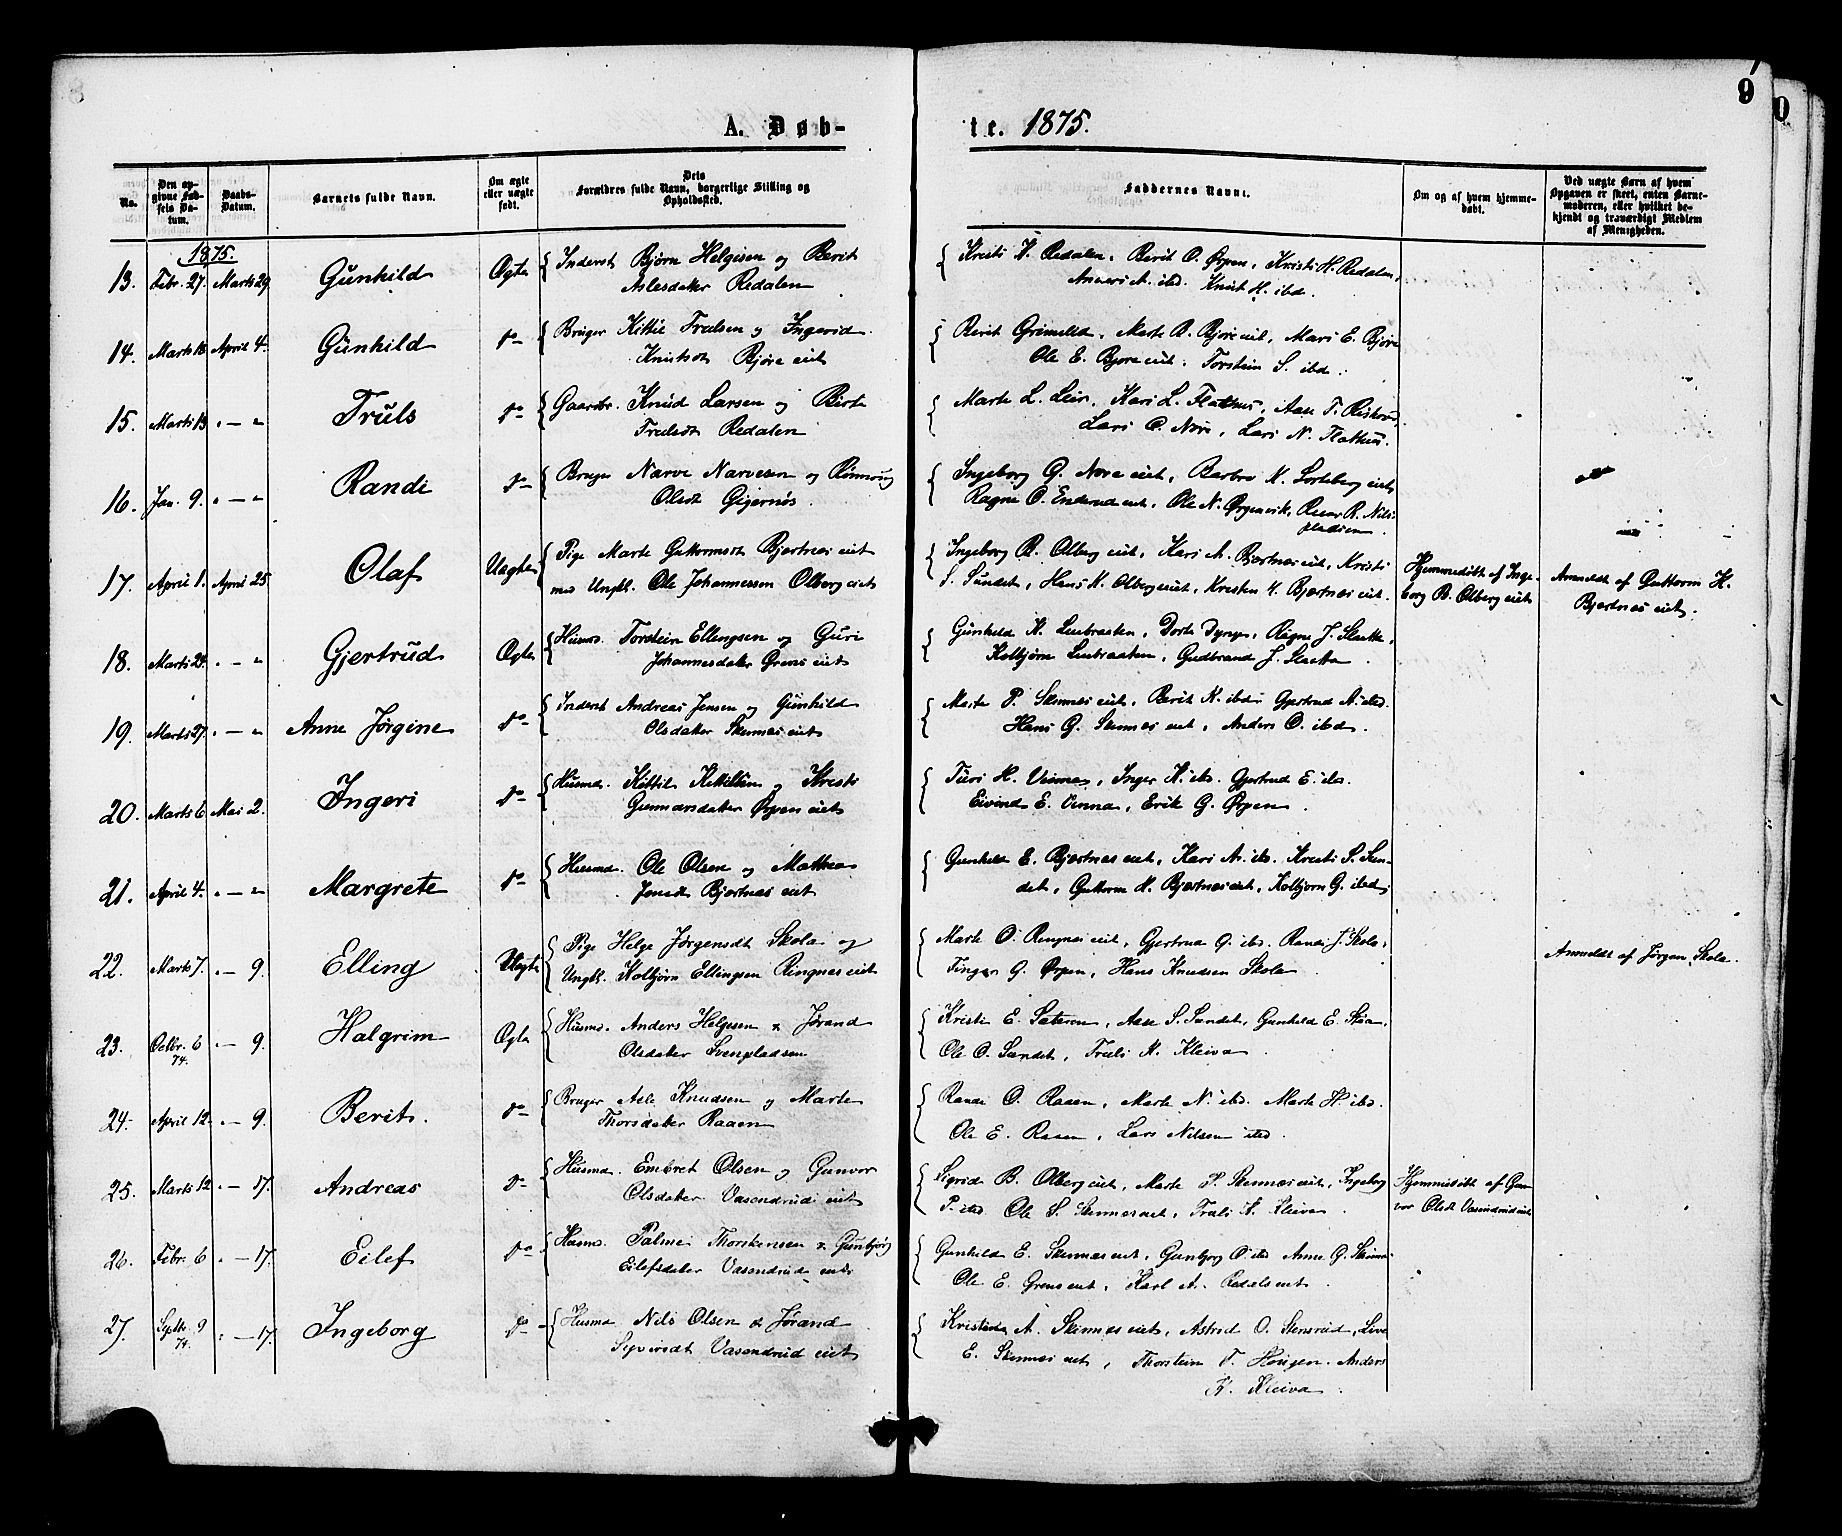 8
9
A. Døb-
te. 1875.
No.
Den opgivne Fødsels Datum.
Daabs-Datum.
Barnets fulde Navn.
Om ægte eller uægte født.
Dets Forældres fulde Navn, borgerlige Stilling og Opholdssted.
Faddernes Navne.
Om og af hvem hjemmedøbt.
Ved uægte Børn af hvem Opgaven er skeet, enten Barnemoderen, eller hvilket bekjendt og troværdigt Medlem af Menigheden.
1875.
13. Febr. 27. Marts 29. Gunhild Ægte Inderst Bjørn Helgesen og Berit
Aslesdatter Redalen
Kristi K. Redalen, Berit O. Ørpen, Kristi H. Redalen,
A. ibd. Knut H. ibd.
14. Marts 18. April 4. Gunhild do Bruger Kittil Trulsen og Ingerid
Knutsdt Bjøre eiet
Berit Grimelid, Marte K. Bjøre eiet, Mari E. Bjøre
Ole E. Bjøre eiet. Torstein S. ibd.
15. Marts 13. " — " Truls do Gaardbr. Knud Larsen og Birte
Trulsdt Redalen
Marte L. Leir, Kari L. Flathus, Aase T.
Lars O. Nore, Lars N. Flathus.
16. Jan. 9. " — " Randi do Bruger Narve Narvesen og Rønnaug
Olsdt Gjjernøs.
Ingeborg G. Nore eiet, Barbro K. Sorteberg eiet,
Ragne O. Enderud eiet, Ole N. Ørgenvik, R. Nils-
pladsen
17. April 1. April 25. Olaf Uægte Pige Marte Guttormsdt Bjertnes eiet
med Ungkl. Ole Johannessen Olberg eiet
Ingeborg B. Olberg eiet, Kari A. Bjertnes eiet, Kristi
S. Sundet, Hans K. Olberg eiet, Kresten G. Bjertnes eiet.
Hjemmedøbt af Inge-
borg B. Olberg eiet
Anmeldt af Guttorm K.
Bjertnes eiet.
18. Marts 24. " — " Gjertrud Ægte Husmd. Torstein Ellingsen og Guri
Johannesdatter Grens eiet
Gunhild K. Lubraaten, Dorte Dynge, Ragne J. Slaatta,
Kolbjørn Lubraaten, Gudbrand J. Slaatta.
19. Marts 27. " — " Anne Jørgine do Inderst Andreas Jensen og Gunhild
Olsdatter Skinnes eiet
Marte P. Skinnes eiet, Berit K. ibd. Gjertrud A. ibd.
Hans G. Skinnes eiet, Anders O. ibd.
20. Marts 6 Mai 2. Ingeri do Husmd. Kittil Kittilsen og Kristi
Gunnarsdatter Ørpen eiet
Turi H. Vinna, Inger K. ibd. Gjertrud E. ibd.
Eivind E. Vinna, Erik G. Ørpen.
21. April 4. " — " Margrete do Husmd. Ole Olsen og Mathea
Jensdt Bjertnes eiet
Gunhild E. Bjertnes eiet, Kari A. ibd. Kristi S. Sun-
det, Guttorm K. Bjertnes eiet, Kolbjørn G. ibd.
22. Marts 7. " — 9. Elling Uægte Pige Helge Jørgensdt Skola og
Ungkl. Kolbjørn Ellingsen Ringnes eiet
Marte O. Ringnes eiet, Gjertrud G. ibd. Randi J. Skola,
Finger G. Ørpen, Hans Knudsen Skola
Anmeldt af Jørgen Skola.
23. Octbr. 6 74. " — 9. Halgrim Ægte Husmd. Anders Helgesen & Jørand
Olsdatter Svenpladsen
Kristi E. Sateren, Aase S. Sundet, Gunhild E. Støa,
Ole O. Sundet, Truls K. Kleiva.
24. April 12. " — 9. Berit. do Bruger Asle Knudsen og Marte
Thorsdatter Raaen
Randi O. Raaen, Marte N. ibd. Marte H. ibd.
Ole E. Raaen, Lars Nilsen ibd.
25. Marts 12 " — 17. Andreas do Husmd. Embret Olsen og Gunvor
Olsdatter Vasendrud eiet
Sigrid B. Olberg eiet, Marte P. Skinnes eiet, Ingeborg
P. ibd. Ole S. Skinnes eiet, Truls K. Kleiva.
Hjemmedøbt af Gun-
vor Olsdt Vasendrud eiet
26. Febr. 6 " — 17. Eilef do Husmd. Palme Thorstensen & Gunbjørg
Eilefsdatter Vasendrud eiet
Gunhild E. Skinnes eiet, Gunbjørg O. ibd. Anne G. Skinnes
Ole E. Grens eiet, Karl A. Redals eiet.
27. Septbr. 9 74. " — 17. Ingeborg do Husmd Nils Olsen & Jørand
Siversdt Vasendrud eiet
A. Skinnes eiet, Astrid O. Stensrud, Live
E. Skinnes eiet, Thorstein T. Haugen. Anders
K. Kleiva.